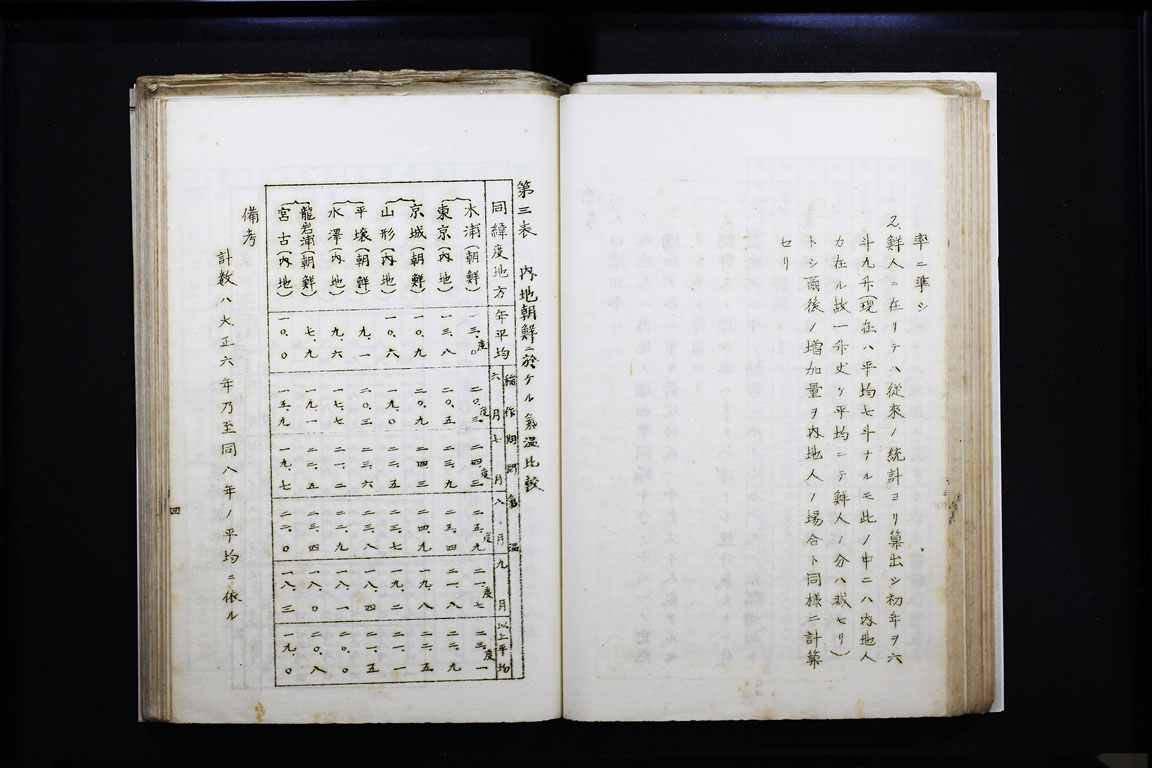 率ニ準シ
2.鮮人ニ在リテハ從來ノ統計ヨリ算出シ初年ヲ六
斗九升(現在ハ平均七斗ナルモ此ノ中ニハ内地人
カ在ル故一升丈ケ平均ニテ鮮人ノ分ハ減セリ)
トシ爾後ノ増加量ヲ内地人ノ場合ト同様ニ計算
セリ
第三表 内地朝鮮ニ於ケル氣温比較
稲作期間氣温
同緯度地方 年平均 六月 七月 八月 九月 以上平均
木浦(朝鮮) 一三、〇度 二〇、三度 二四、三度 二五、九度 二一、七度 二三、一度
東京(内地) 一三、八 二〇、五 二三、九 二五、四 二一、八 二二、九
京城(朝鮮) 一〇、九 二〇、九 二四、三 二四、九 一九、八 二二、五
山形(内地) 一〇、六 一九、〇 二二、五 二三、七 一九、二 二一、一
平壤(朝鮮) 九、一 二〇、三 二三、六 二三、八 一八、四 二一、五
水澤(内地) 九、六 一七、七 二一、二 二二、九 一八、一 二〇、〇
龍岩浦(朝鮮) 七、九 一九、一 二二、五 二三、四 一八、〇 二〇、八
宮古(内地) 一〇、〇 一五、九 一九、七 二二、〇 一八、三 一九、〇
備考
計数ハ大正六年乃至同八年ノ平均ニ依ル
四